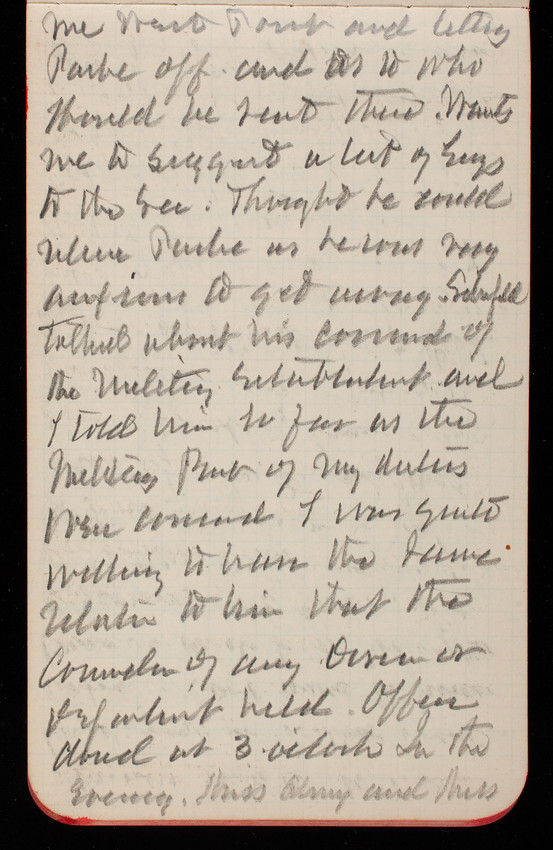 me West Point and letting
Parke off and as to who
should be sent there. Wants
me to suggest a list of Engs
to the Sec. Thought he could
relieve Parke as he was very
anxious to get away. Schofield
talked about his command of
the Military Establishment and
I told him so far as the
Military Part of my duties
were concerned I was quite
willing to have the same
relation to him that the
Commander of any Division or
Department held. Office
closed at 3 o'clock In the
Evening. Miss Almy and Miss